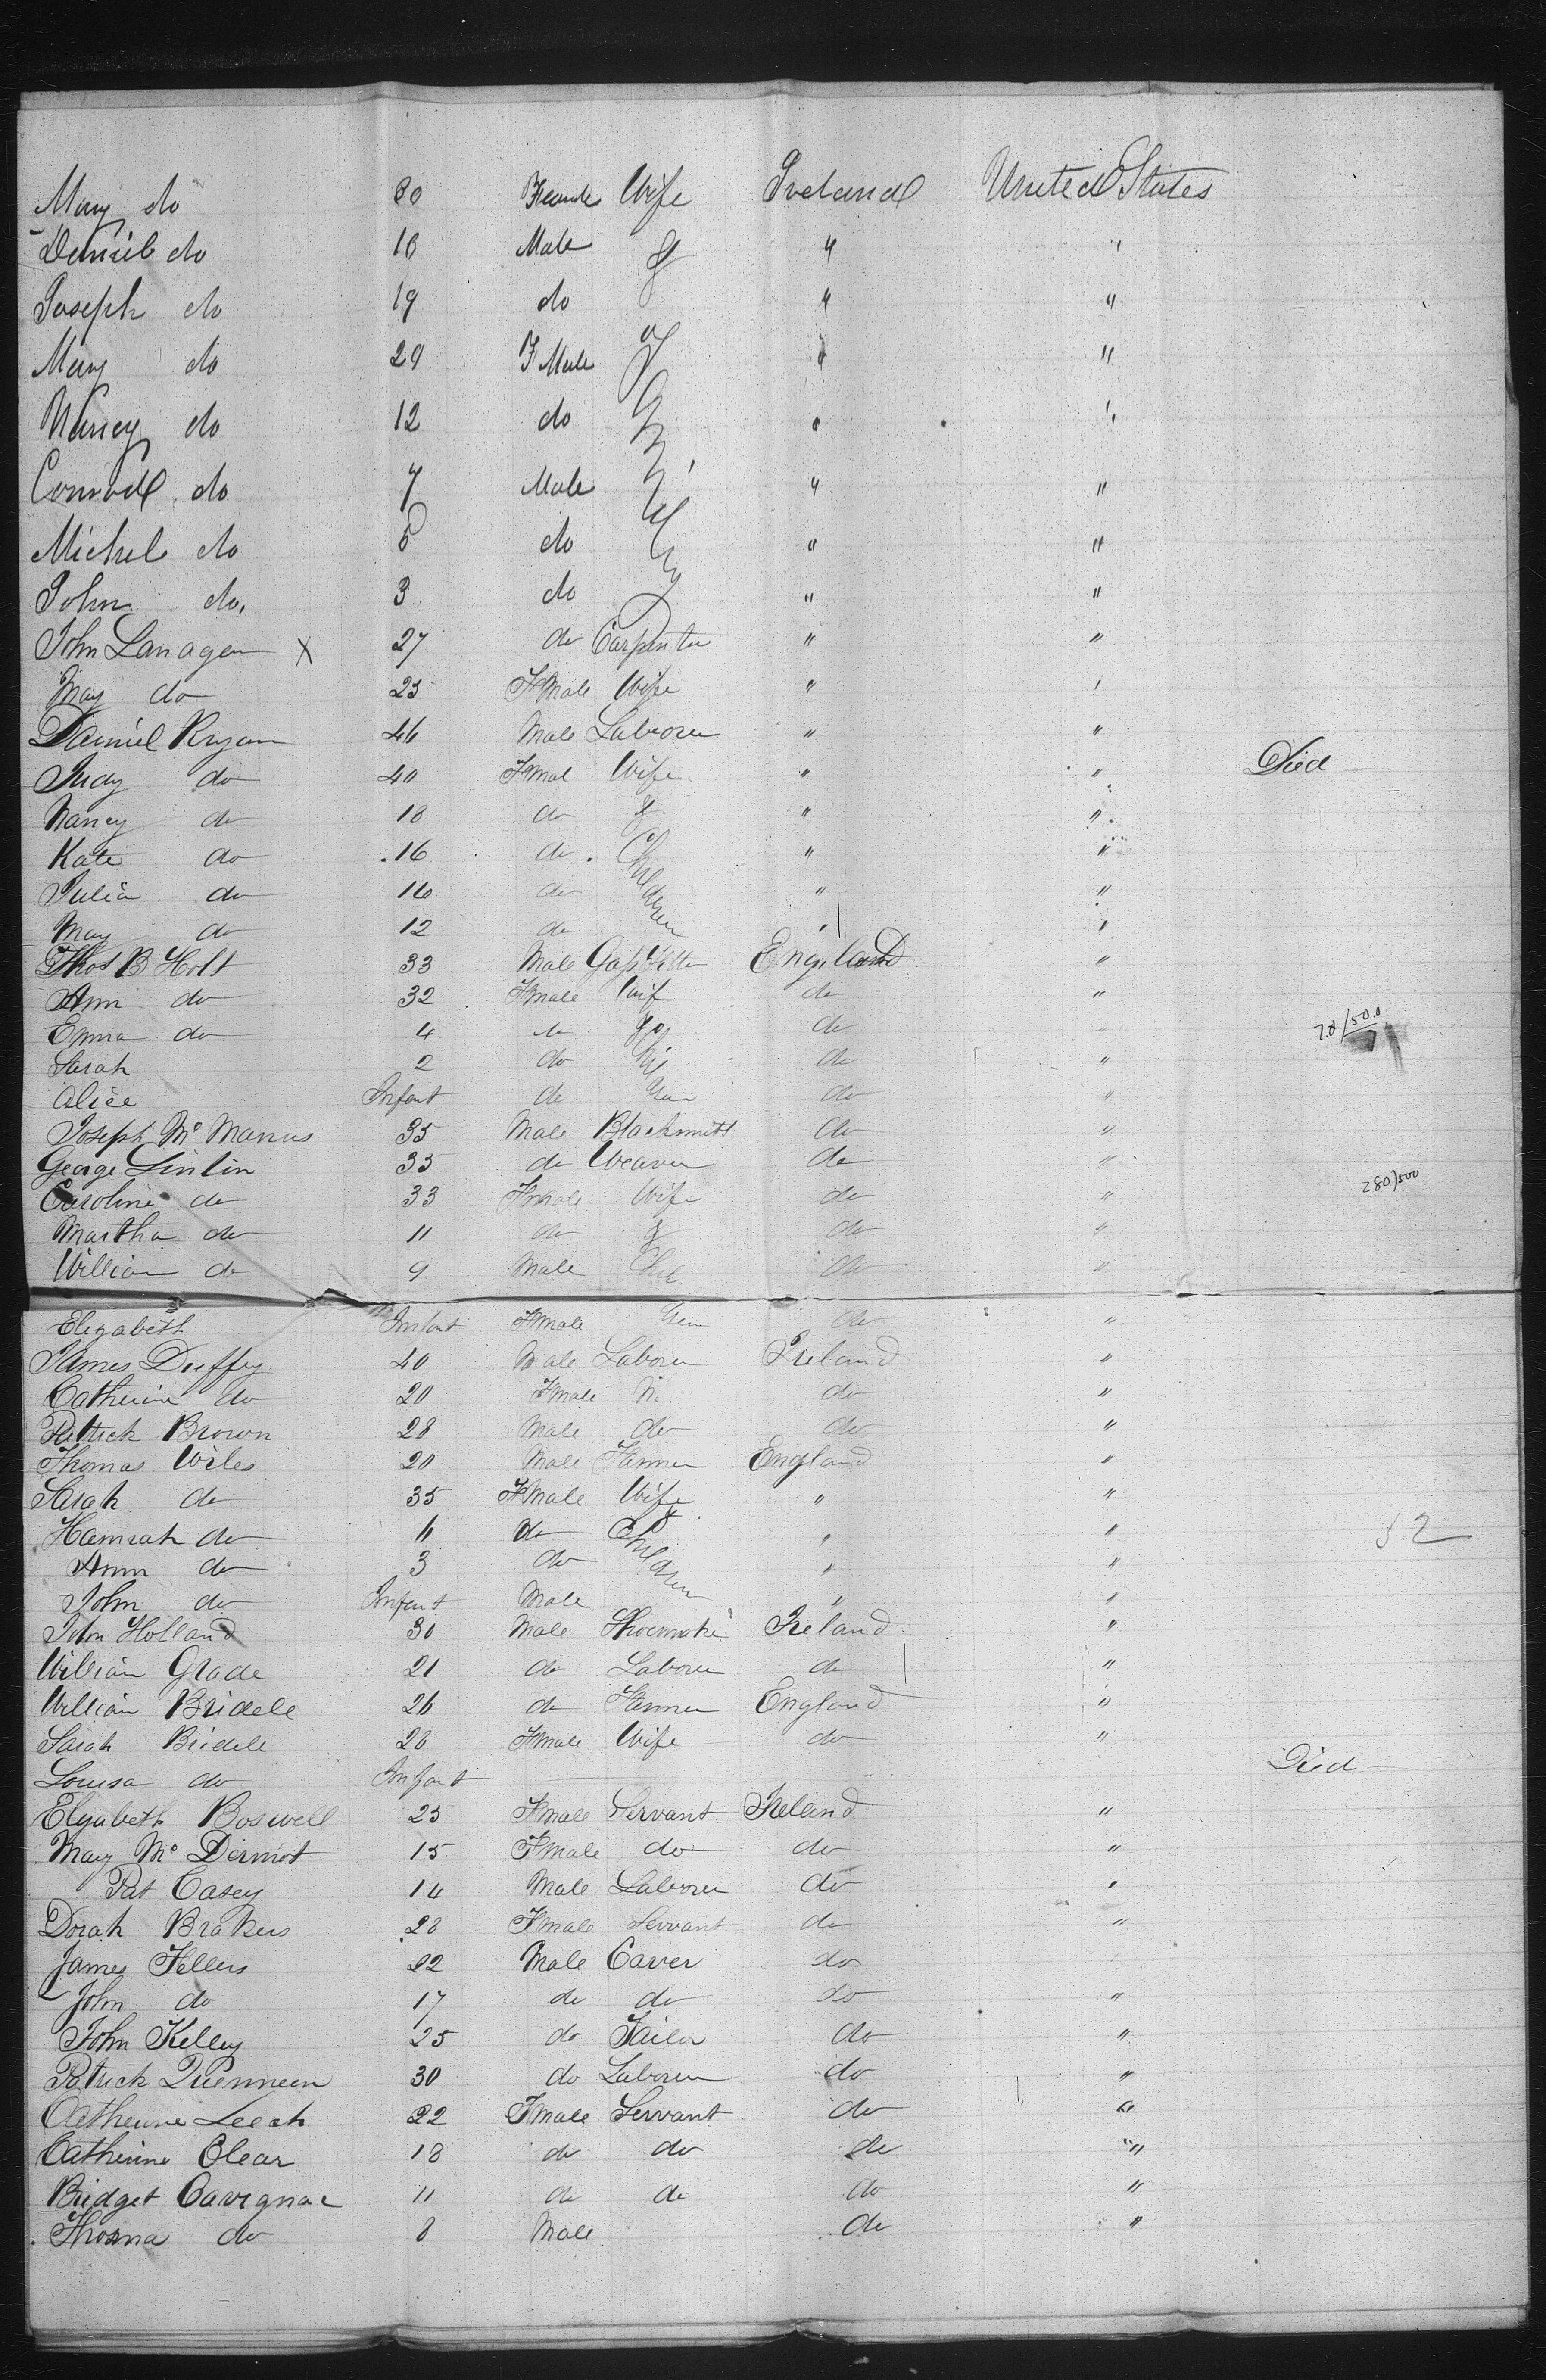 Mary do 30 Female Wife Ireland United States
Daniel do 18 Male & " "
Joseph do 19 do " "
Mary do 29 F Male " "
Nancy do 12 do " "
Conrad do 7 Male " "
Michel do 5 do " "
John do. 3 do " "
John Lanagen X 27 do Carpenter " "
May do 25 Fmale Wife " "
Daniel Rryan 46 Male Laborer " "
Judy do 40 Fmal Wife " " Died
Nancy do 18 do & " "
Kate do 16 do Children " "
Julia do 16 do " "
May do 12 do " "
Thos B Holt 33 Male Gass fitter England "
Ann do 32 Fmale Wif do "
Emma do 4 do & do 7.0/50.0
Sarah 2 do Chil do "
Alice Infant do dren do "
Joseph Mc Manus 35 Male Blacksmith do "
George Linlin 35 do Weaver do "
Caroline do 33 Fmale Wife do " 280/500
Martha do 11 do & do "
William do 9 Male Chil do "
Elizabeth Infant Fmale dren do "
James Duffey 40 Male Laborer Ireland "
Catherine do 20 Fmale do "
Patrick Brown 28 Male do do "
Thomas Wiles 20 Male Farmer England "
Sarah do 35 Fmale Wife " "
Hannah do 11 do & " " 52
Ann do 3 do Children " "
John do Infant Male " "
John Holland 30 Male Shoemaker Ireland "
William Grade 21 do Laborer do "
William Bridele 26 do Farmer England "
Sarah Bridele 28 Fmale Wife do "
Louisa do Infant Died
Elyabeth Boswell 25 Fmale Servant Ireland "
Mary Mc Dermot 15 Fmale do do "
Pat Casey 14 Male Laborer do "
Dorah Brakers 28 Fmale Servant do "
James Fellers 22 Male Carver do
John do 17 do do do "
John Kelley 25 do Tailor do "
Patrick Quenneen 30 do Laborer do "
Catherine Leeah 22 Fmale Servant do "
Catherine Clear 18 do do do "
Bridget Cavignac 11 do do do "
Thoma do 8 Male do "